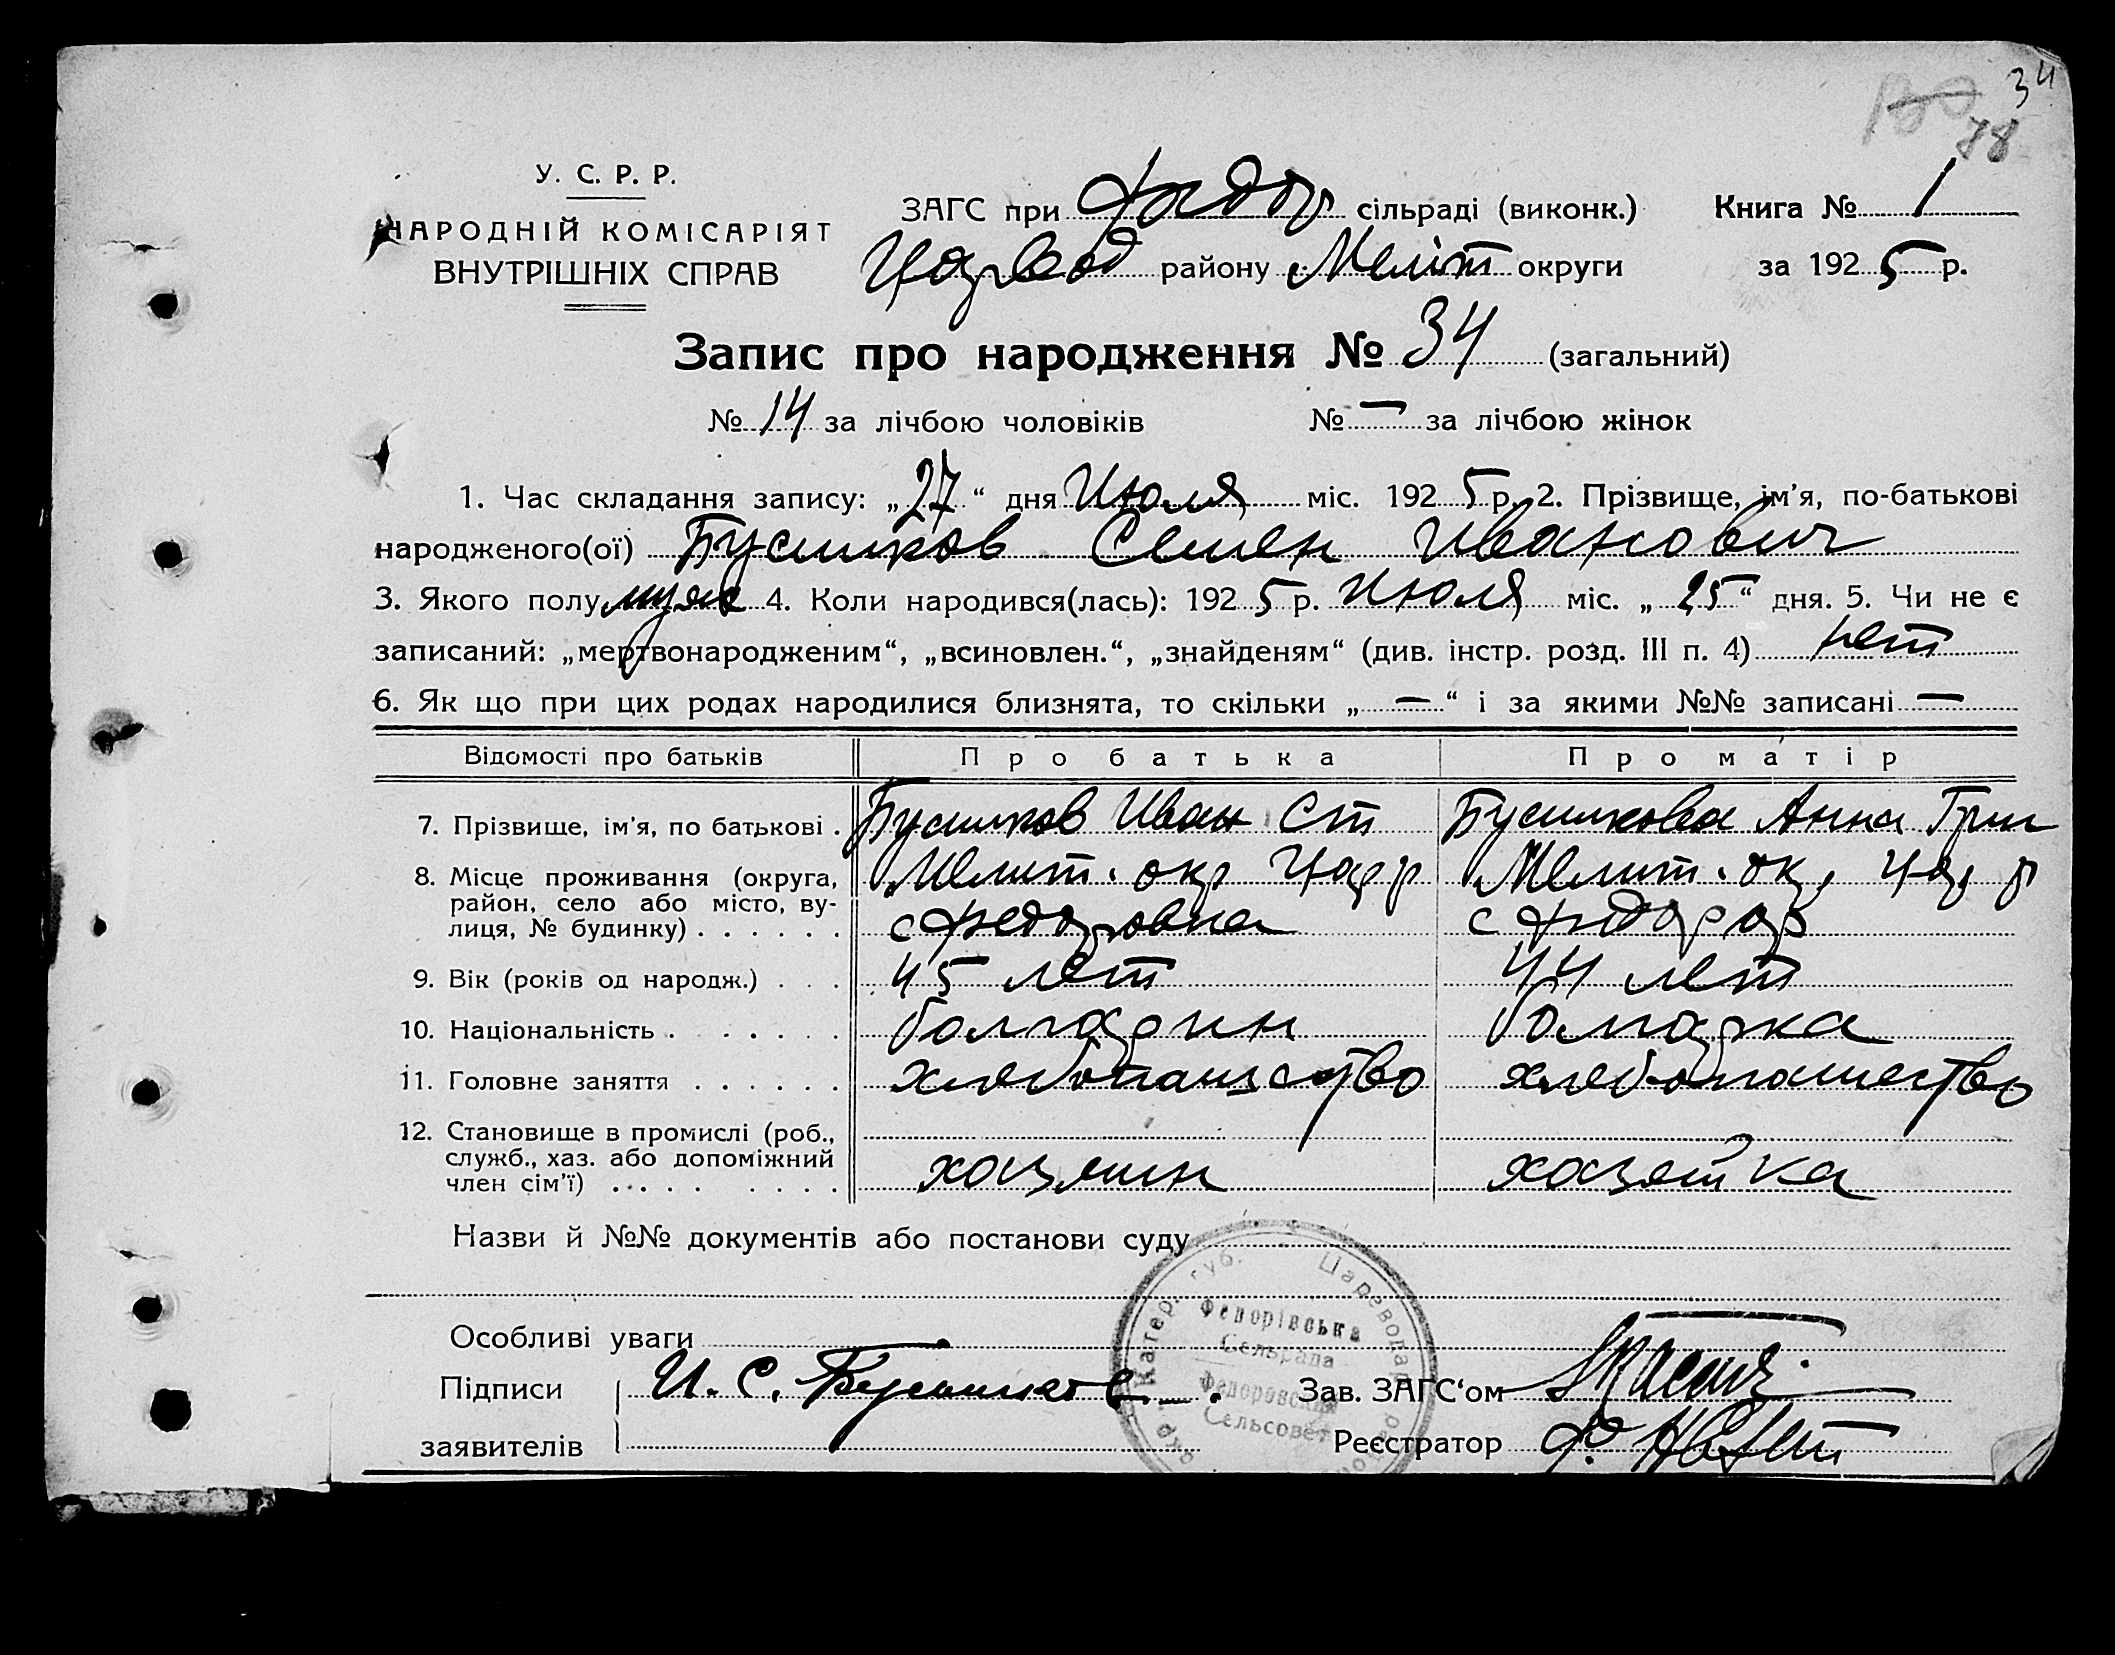 34
78
У. С. Р. Р.
НАРОДНІЙ КОМІСАРІЯТ
ВНУТРІШНІХ СПРАВ
ЗАГС при Федор сільраді (виконк.) Книга № 1
Царевод району Меліт округи за 1925 р.
Запис про народження № 34 (загальний)
№ 14 за лічбою чоловіків № — за лічбою жінок
1. Час складання запису: „27“ дня Июля міс. 1925 р. 2. Прізвище, ім’я, по-батькові
народженого(ої) Семен Иванович
3. Якого полу муж 4. Коли народився(лась): 1925 р. Июля міс. „25“ дня. 5. Чи не є
записаний: „мертвонародженим“, „всиновлен.“, „знайденям“ (див. інстр. розд. III п. 4) нет
6. Як що при цих родах народилися близнята, то скільки „—“ і за якими №№ записані —
Відомості про батьків Про батька Про матір
7. Прізвище, ім’я, по батькові . Иван Ст Анна Григ
8. Місце проживання (округа, Мелит. окр Цар р Мелит. ок, Цар, р
район, село або місто, ву-
лиця, № будинку) . . . . . . с Федоровка с Федор
9. Вік (років од народж.) . . . 45 лет 44 лет
10. Національність . . . . . . болгарин болгарка
11. Головне заняття . . . . . . хлебопашество хлебопашество
12. Становище в промислі (роб.,
служб., хаз. або допоміжний
член сім’ї) . . . . . . . . хазяин хазяйка
Назви й №№ документів або постанови суду
Особливі уваги
Підписи И. С.
заявителів
Зав. ЗАГС‘ом
Реєстратор
Катер. губ. Царевода
Федорівська
Сельрада
Федоровский
Сельсовет